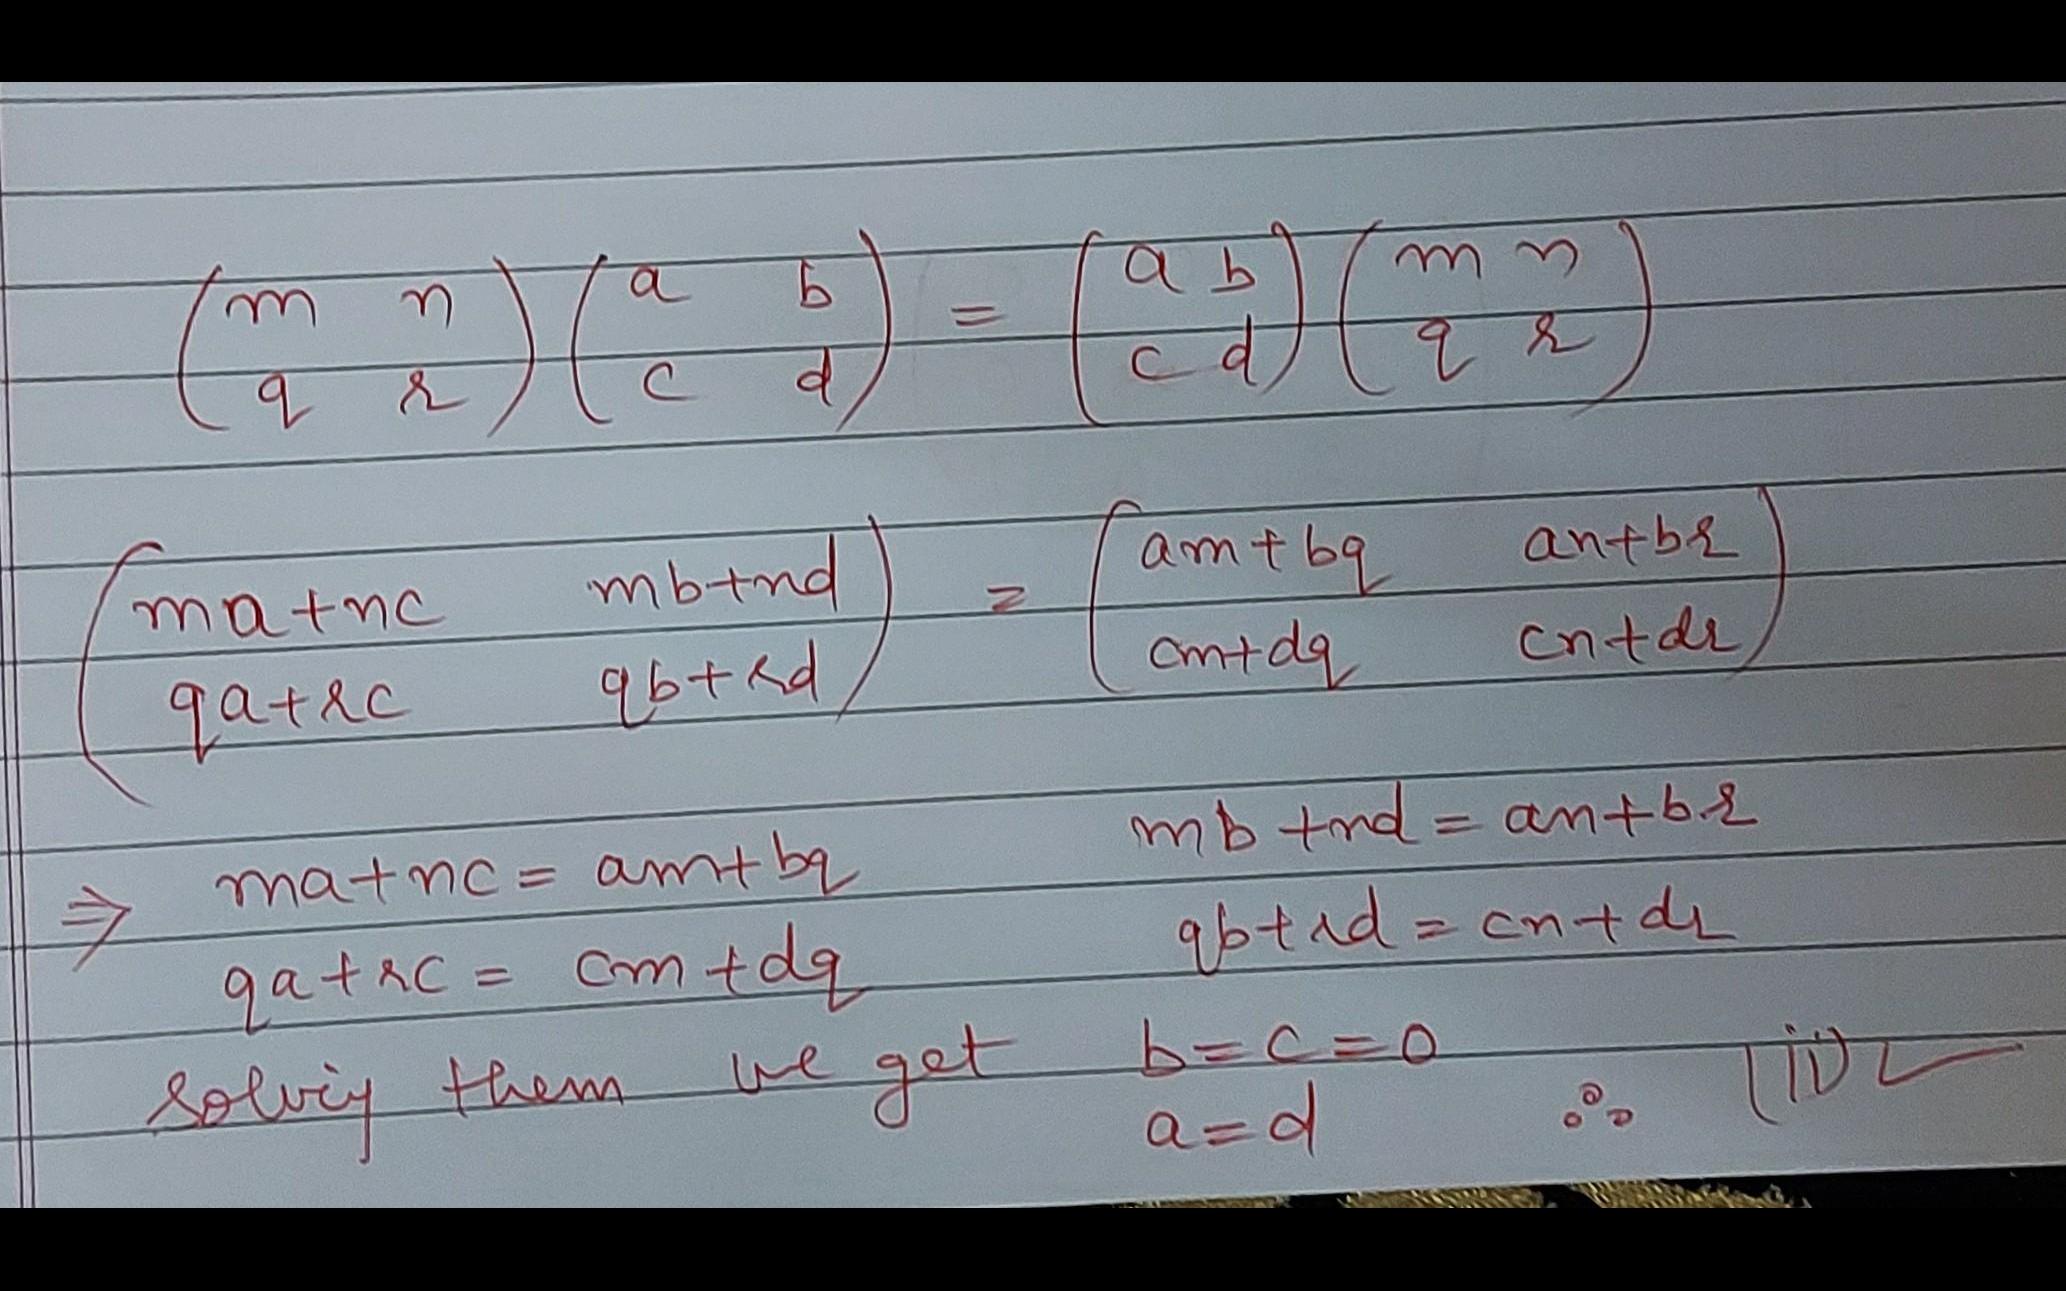 (m n q r) (a b c d) = (a b c d) (m n q r)
(ma+nc mb+nd qa+rc qb+rd) = (am+bq an+br cm+dq cn+dr)
⇒ ma+nc = am+bq mb+nd = an+br
qa+rc = cm+dq qb+rd = cn+dr
solviy them we get b=c=0
a=d ∴ (ii) ✓